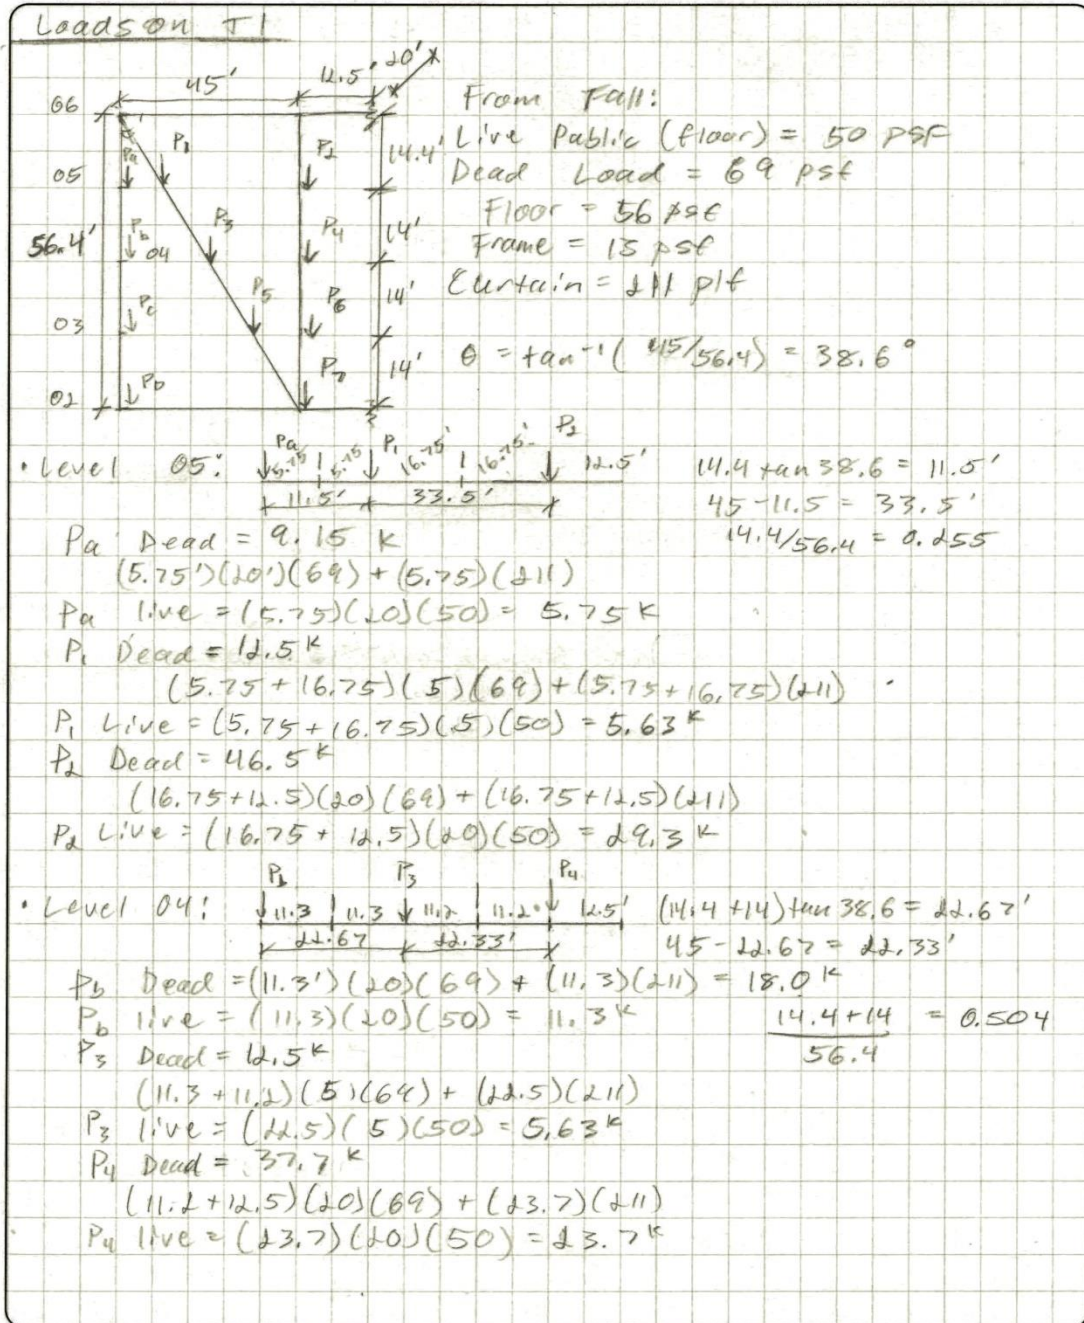 Loads on T1
45'
12.5'
20'
06
05
04
03
02
56.4'
14.4'
14'
14'
14'
Pa
P1
P2
Pb
P3
P4
Pc
P5
P6
PD
P7
From Fall:
Live Public (floor) = 50 psf
Dead Load = 69 psf
Floor = 56 psf
Frame = 13 psf
Curtain = 211 plf
θ = tan⁻¹(45/56.4) = 38.6°
• Level 05:
Pa P1 P2
5.75 5.75 16.75' 16.75' 12.5'
11.5' 33.5'
14.4 tan 38.6 = 11.5'
45 - 11.5 = 33.5'
14.4/56.4 = 0.255
Pa Dead = 9.15 K
(5.75')(20')(69) + (5.75)(211)
Pa live = (5.75)(20)(50) = 5.75 K
P1 Dead = 12.5 K
(5.75 + 16.75)(5)(69) + (5.75 + 16.75)(211)
P1 Live = (5.75 + 16.75)(5)(50) = 5.63 K
P2 Dead = 46.5 K
(16.75 + 12.5)(20)(69) + (16.75 + 12.5)(211)
P2 Live = (16.75 + 12.5)(20)(50) = 29.3 K
• Level 04:
Pb P3 P4
11.3 11.3 11.2 11.2 12.5'
22.67 22.33'
(14.4 + 14) tan 38.6 = 22.67'
45 - 22.67 = 22.33'
Pb Dead = (11.3')(20)(69) + (11.3)(211) = 18.0 K
Pb live = (11.3)(20)(50) = 11.3 K
14.4 + 14 = 0.504
56.4
P3 Dead = 12.5 K
(11.3 + 11.2)(5)(69) + (22.5)(211)
P3 live = (22.5)(5)(50) = 5.63 K
P4 Dead = 37.7 K
(11.2 + 12.5)(20)(69) + (23.7)(211)
P4 live = (23.7)(20)(50) = 23.7 K